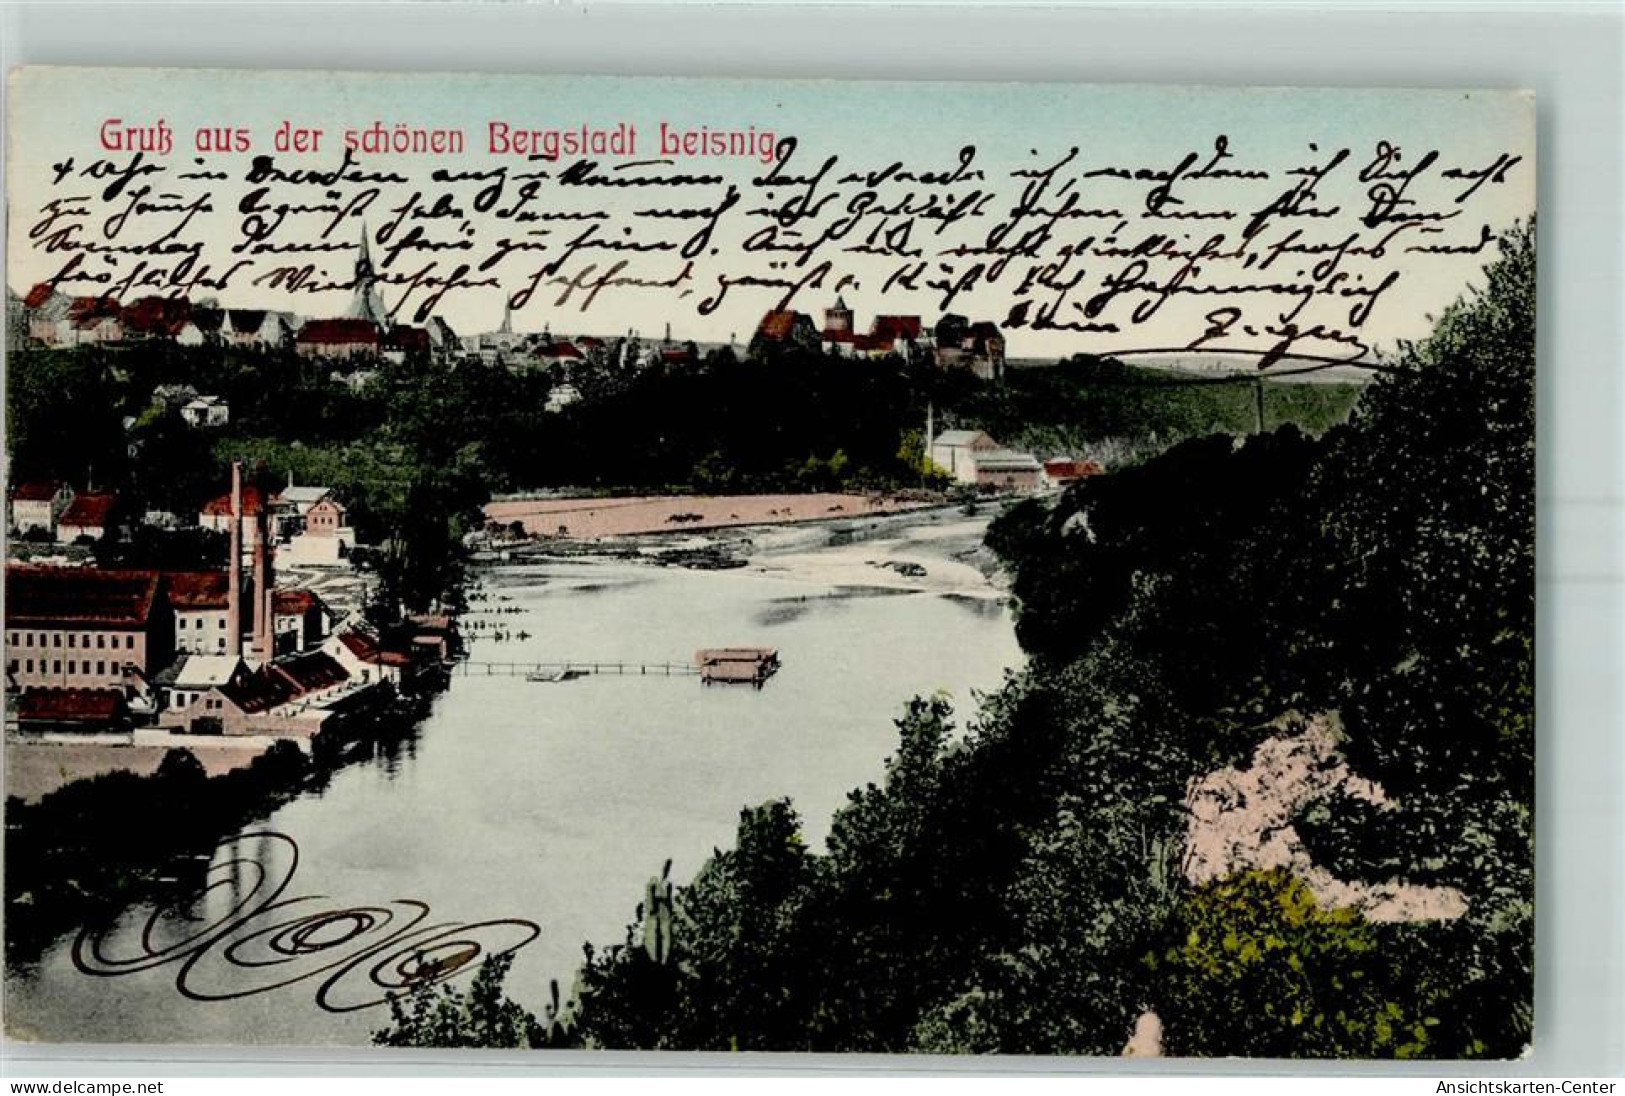 Gruß aus der schönen Bergstadt Leisnig
4 Uhr in Dresden anzukommen, doch werde ich, nachdem ich Dich erst
zu Hause begrüßt habe, dann noch ins Geschäft gehen, um für den
Sonntag dann frei zu sein. Auf ein recht glückliches, frohes und
fröhliches Wiedersehen hoffend, grüßt u. küßt Dich herzinniglich
Dein Eugen
Ansichtskarten-Center